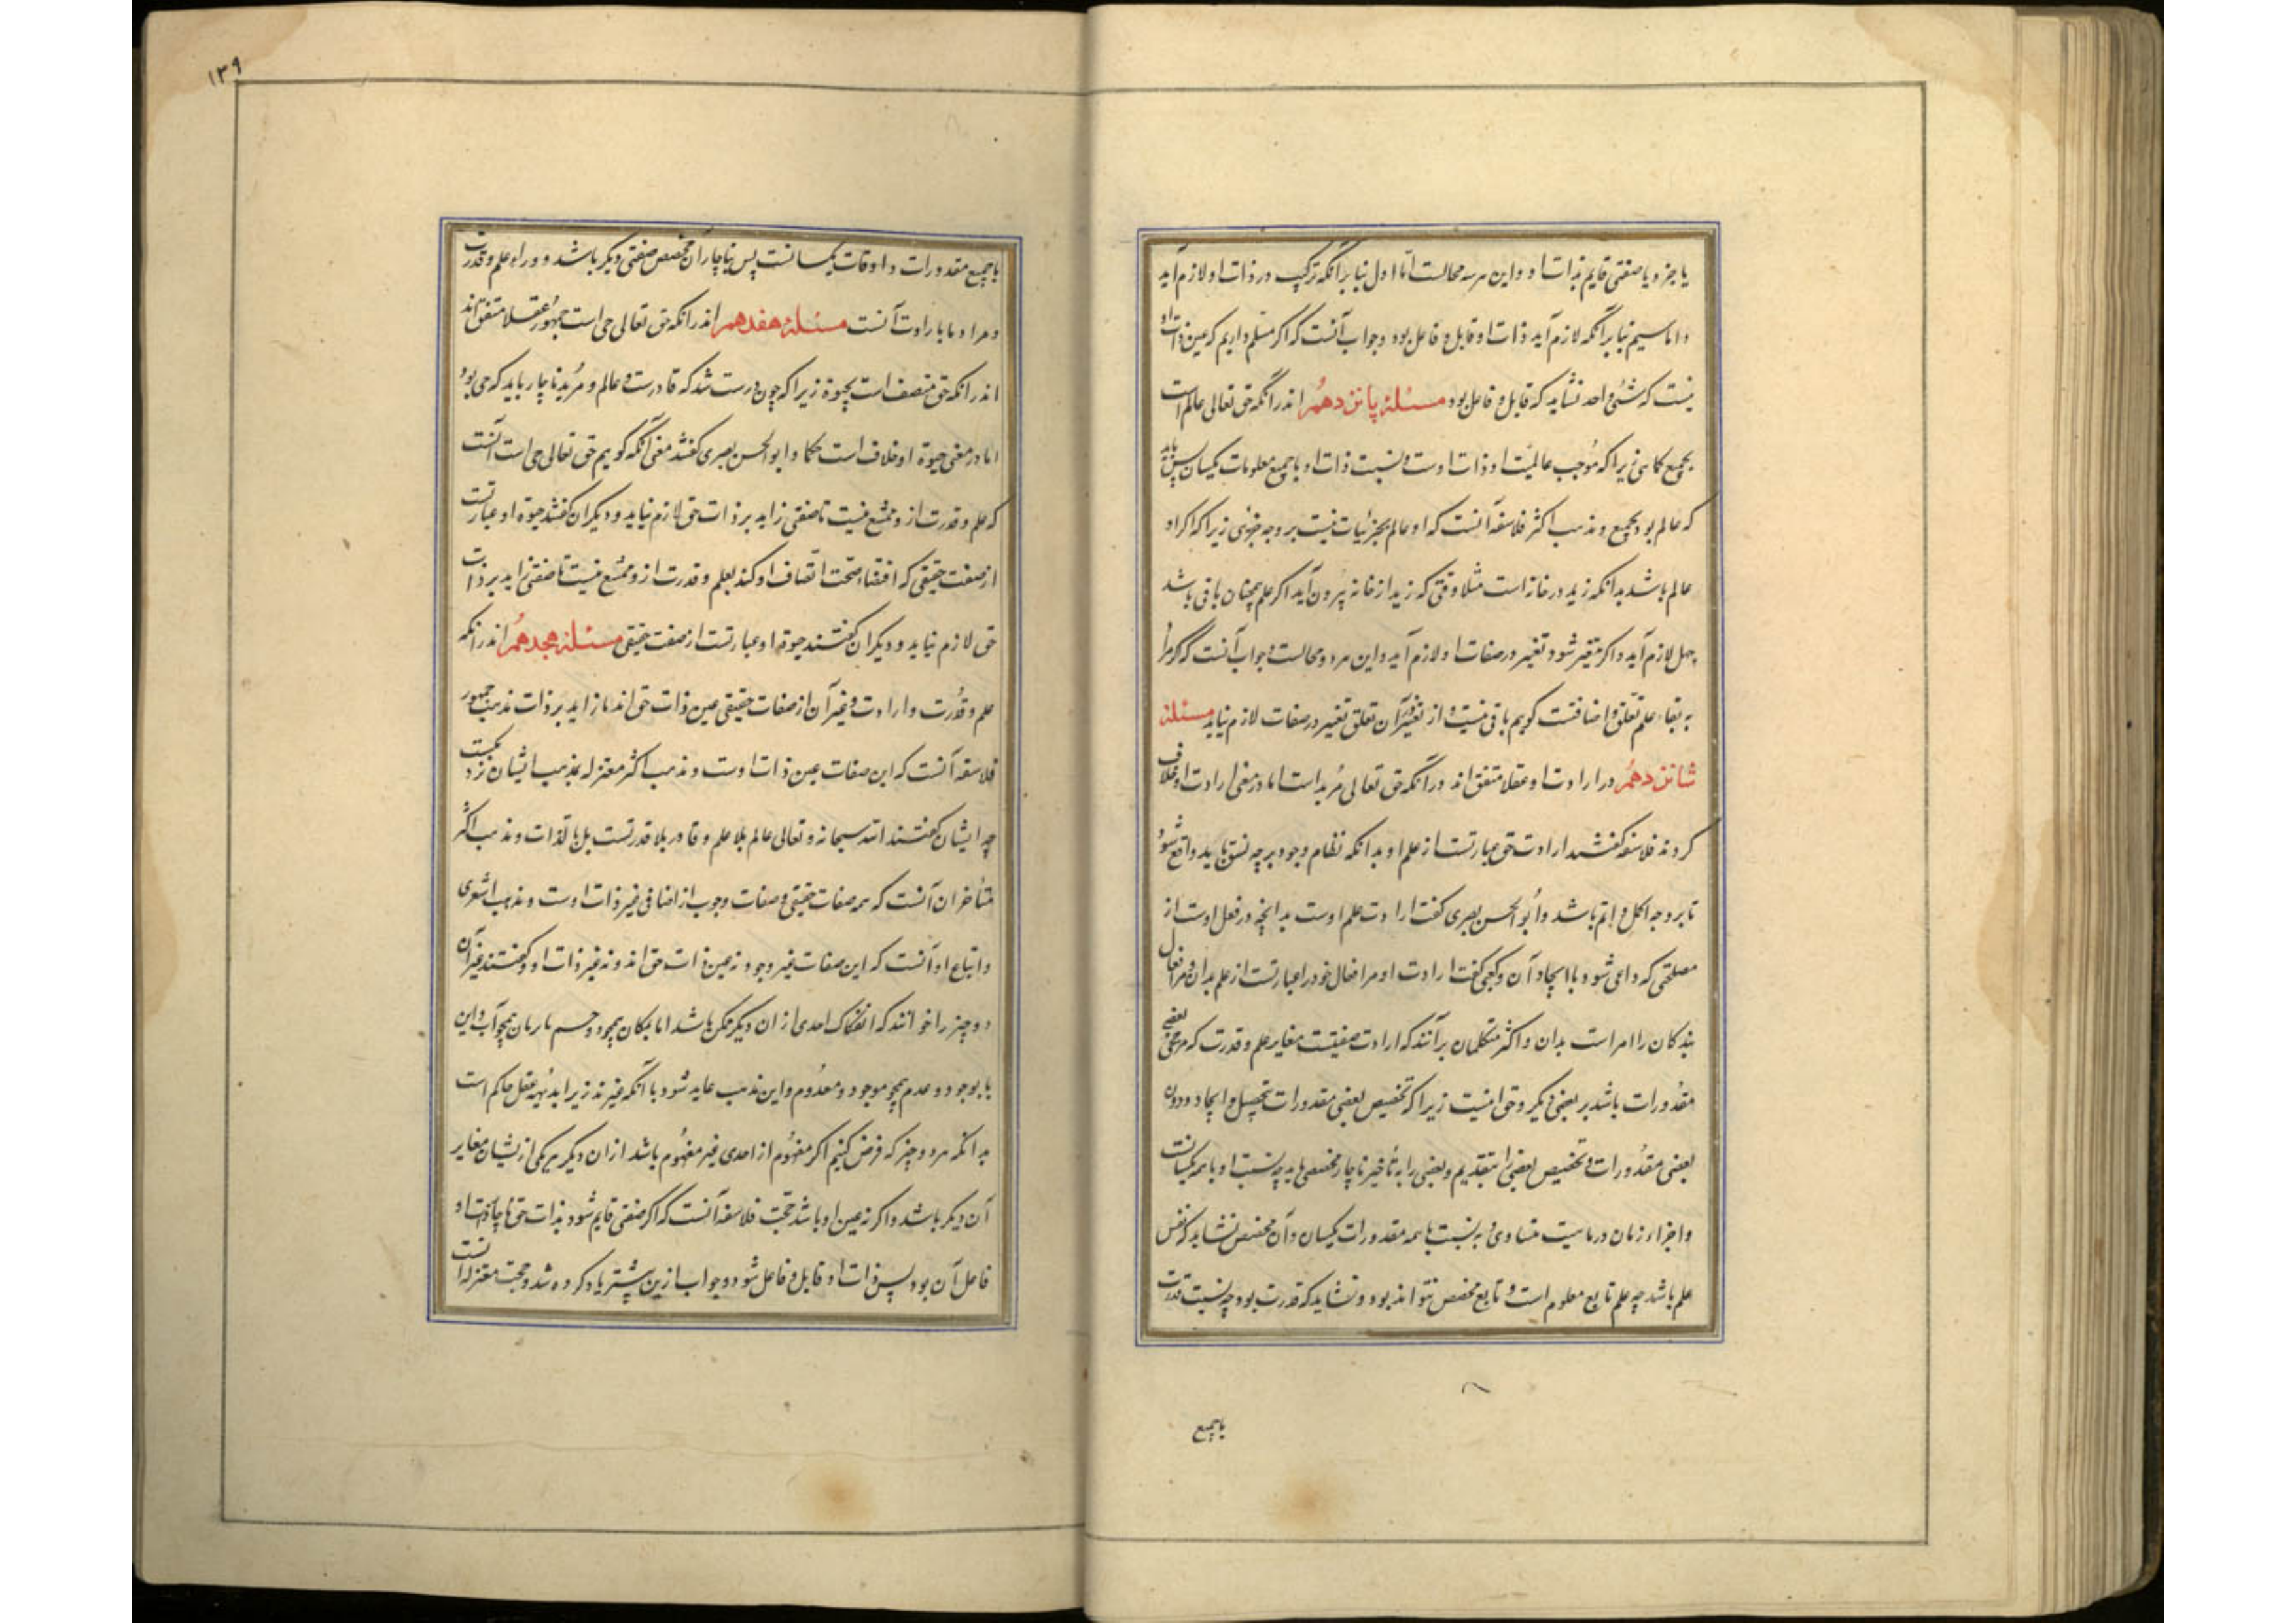 یا جزو یا صفتی قایم بذات او و این هر سه محالست اما اول بنا برآنکه ترکیب در ذات او لازم آید
و اما سیم بنا برآنکه لازم آید ذات او قابل و فاعل بود و جواب آنست که اگر مسلم داریم که عین ذات او
نیست که شئی واحد نشاید که قابل و فاعل بود مسئلهٔ پانزدهم اندرانکه حق تعالی عالم است
بجمیع کلا زیرا که موجب عالمیت او ذات اوست و نسبت ذات او با جمیع معلومات یکسان پس باید
که عالم بود بجمیع و مذهب اکثر فلاسفه آنست که او عالم بجزئیات نیست بر وجه جزئی زیرا که اگر او
عالم باشد بدانکه زید در خانه است مثلا وقتی که زید از خانه بیرون آید اگر علم همچنان باقی باشد
جهل لازم آید و اگر متغیر شود تغییر در صفات او لازم آید و این هر دو محالست و جواب آنست که گر مراد
به بقاء علم تعلق و اضافتست گویم باقی نیست و از تغیر آن تعلق تغییر در صفات لازم نیاید مسئلهٔ
شانزدهم در ارادت او عقلا متفق اند درآنکه حق تعالی مرید است اما در معنی ارادت او خلاف
کردند فلاسفه گفتند ارادت حق عبارتست از علم او بدانکه نظام وجود بر چه نسق باید واقع شود
تا بر وجه اکمل و اتم باشد و ابو الحسن بصری گفت ارادت علم اوست بدانچه در فعل اوست از
مصلحتی که داعی شود با ایجاد آن و کعبی گفت ارادت او مر افعال خود را عبارتست از علم بدان و مر افعال
بندکان را امر است بدان و اکثر متکلمان برآنند که ارادت صفتیست مغایر علم و قدرت که مرجح بعضی
مقدورات باشد بر بعضی دیگر و حق اینست زیرا که تخصیص بعضی مقدورات بتحصیل و ایجاد و دون
بعضی مقدورات و تخصیص بعضی را بتقدیم و بعضی را به تأخیر ناچار مخصصی باید چه نسبت او با همه یکسانست
و اجزاء زمان در ماهیت متساوی و به نسبت با همه مقدورات یکسان و آن مخصص نشاید که نفس
علم باشد چه علم تابع معلوم است و تابع مخصص نتواند بود و نشاید که قدرت بود چه نسبت قدرت
با جمیع
۱۳۹
با جمیع مقدورات و اوقات یکسانست پس بناچار آن مخصص صفتی دیگر باشد و وراء علم و قدرت
و مراد ما بارادت آنست مسئلهٔ هفدهم اندرانکه حق تعالی حی است جمهور عقلا متفق اند
اندرانکه حق متصف است بحیوة زیرا که چون درست شد که قادرست و عالم و مرید ناچار باید که حی بود
اما در معنی حیوة او خلاف است حکما و ابو الحسن بصری گفتند معنی آنکه گویم حق تعالی حی است آنست
که علم و قدرت از و ممتنع نیست تا صفتی زاید بر ذات حق لازم نیاید و دیگران گفتند حیوة او عبارتست
از صفت حقیقی که اقتضاء صحت اتصاف او کند بعلم و قدرت از و ممتنع نیست تا صفتی زاید بر ذات
حق لازم نیاید و دیگران گفتند حیوة او عبارتست از صفت حقیقی مسئلهٔ هجدهم اندرانکه
علم و قدرت و ارادت و غیر آن از صفات حقیقی عین ذات حق اند یا زاید بر ذات مذهب جمهور
فلاسفه آنست که این صفات عین ذات اوست و مذهب اکثر معتزله بمذهب ایشان نزدیکست
چه ایشان گفتند الله سبحانه و تعالی عالم بلا علم و قادر بلا قدرتست بل بالذات و مذهب اکثر
متأخران آنست که همه صفات حقیقی و صفات وجوب از اضافی غیر ذات اوست و مذهب اشعری
و اتباع او آنست که این صفات غیر وجود نه عین ذات حق اند و نه غیر ذات او و گفتند غیر آن
دو چیز را خوانند که انفکاک احدی از ان دیگر ممکن باشد اما بمکان همچو دو جسم یا بزمان همچو آب و ابن
یا بوجود و عدم همچو موجود و معدوم و این مذهب عاید شود با آنکه غیرند زیرا بدیهه عقل حاکم است
بدانکه هر دو چیز که فرض کنیم اگر مفهوم از احدی غیر مفهوم باشد از ان دیگر هر یکی از یشان مغایر
آن دیگر باشد و اگر نه عین او باشد حجت فلاسفه آنست که اگر صفتی قایم شود بذات حق ناچار ذات او
فاعل آن بود پس ذات او قابل و فاعل شود و جواب ازین پیشتر یاد کرده شد و حجت معتزله آنست